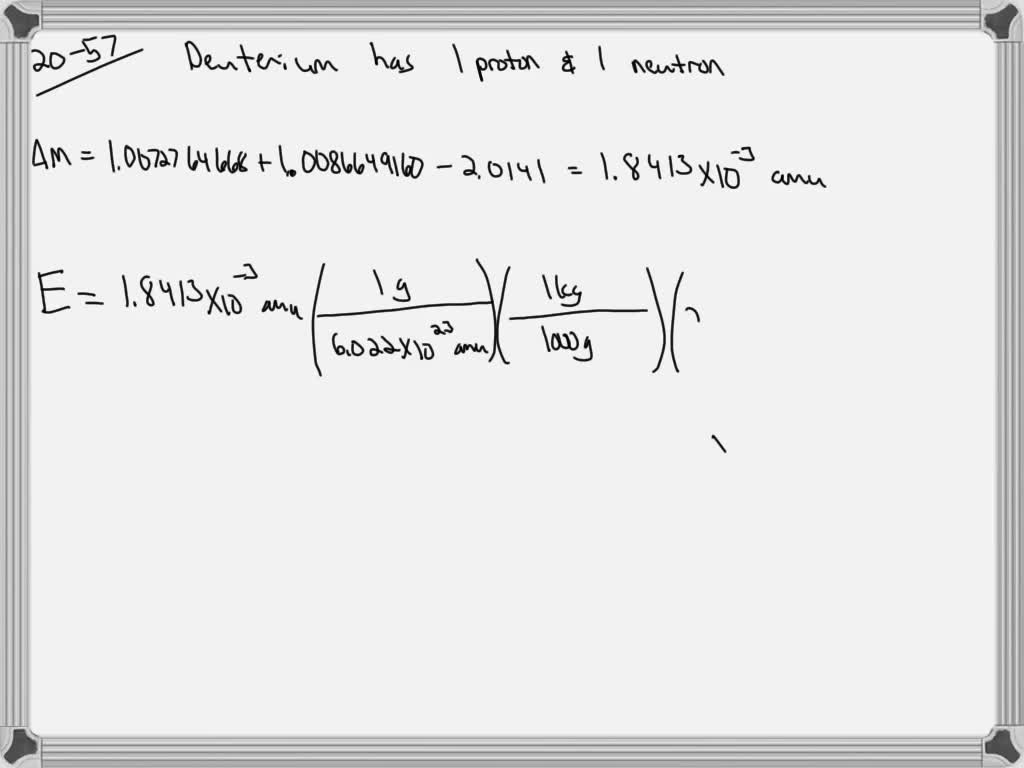 20-57 Deuterium has 1 proton & 1 neutron
Δm = 1.0072764668 + 1.0086649160 - 2.0141 = 1.8413×10⁻³ amu
E = 1.8413×10⁻³ amu (1g / 6.022×10²³ amu)(1kg / 1000g)(